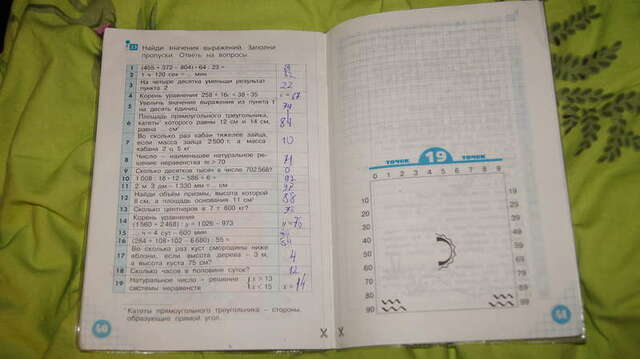 23 Найди значения выражений. Заполни
пропуски. Ответь на вопросы.
1 (405 + 372 – 804) · 64 : 23 =
2 1 ч 120 сек = ... мин 62
3 На четыре десятка уменьши результат
пункта 2 22
4 Корень уравнения 258 + 16
5 Увеличь значение выражения из пункта 1
на десять единиц
6 Площадь прямоугольного треугольника,
катеты* которого равны 12 см и 14 см,
равна ... см² 84
7 Во сколько раз кабан тяжелее зайца,
если масса зайца 2500 г, а масса
кабана 2 ц 5 кг
8 Число – наименьшее натуральное ре-
шение неравенства m > 70 71
9 Сколько десятков тысяч в числе 702568? 0
10 1008 : 18 + 12 – 586 + 6 =
11 2 м 3 дм – 1330 мм = ... см
12 Найди объём призмы, высота которой
8 см, а площадь основания 11 см² 88
13 Сколько центнеров в 7 т 800 кг?
14 Корень уравнения
(1560 + 2468) : y = 1026 – 973 y = 76
15 ... ч = 4 сут – 600 мин
16 (284 + 108 · 102 – 6680) : 55 =
17 Во сколько раз куст смородины ниже
яблони, если высота дерева – 3 м,
а высота куста 75 см? 4
18 Сколько часов в половине суток? 12
19 Натуральное число – решение
системы неравенств { x > 13
x < 15 x = 14
* Катеты прямоугольного треугольника – стороны,
образующие прямой угол.
40
точек 19 точек
0 9
10 19
20 29
30 39
40 49
50 59
60 69
70 79
80 89
90 99
41